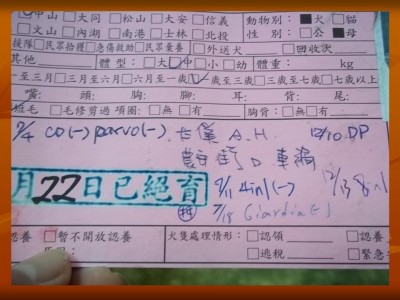 中山 □大同 □松山 □大安 □信義
□文山 □內湖 □南港 □士林 □北投
動物別：■犬 □貓
性 別：□公 ■母
援隊 □民眾拾獲 □急傷救助 □民眾棄養 □外送犬 □回收次
其他 體型：□大 中 □小 □幼 體重： kg
至三月 □三月至六月 □六月至一歲 一歲至三歲 □三歲至七歲 □七歲以上
嘴： 頭： 胸： 腳： 耳： 背： 尾：
短毛 □毛修剪過 項圈：□無 □有 胸背：□無 □有
9/4 CO(-) parvo(-). A.H. 12/10 DP
車禍
月22日已絕育 9/11 4in1(-) 12/13 8in1
9/18 Giardia(-)
認養 □暫不開放認養 犬隻處理情形：□認領 □認養
□逃脫 □緊急